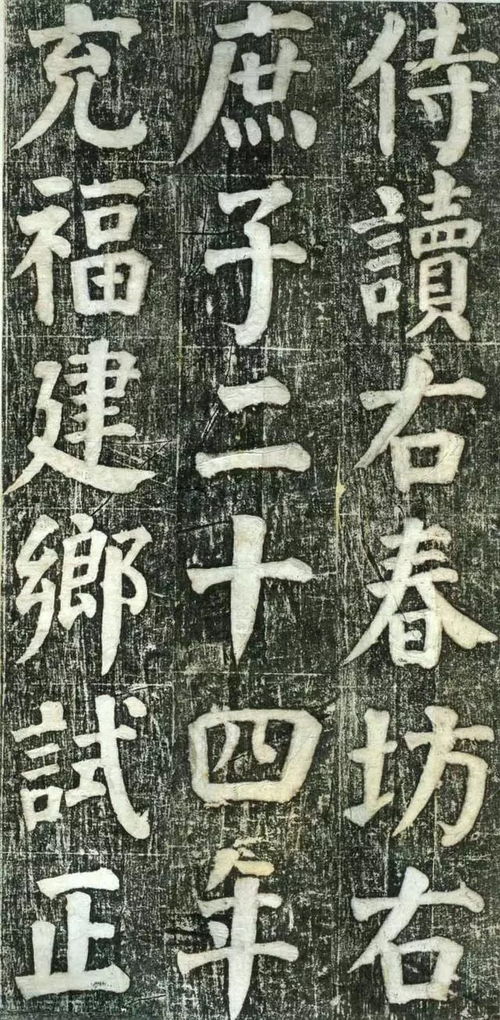 侍讀右春坊右
庶子二十四年
充福建鄉試正